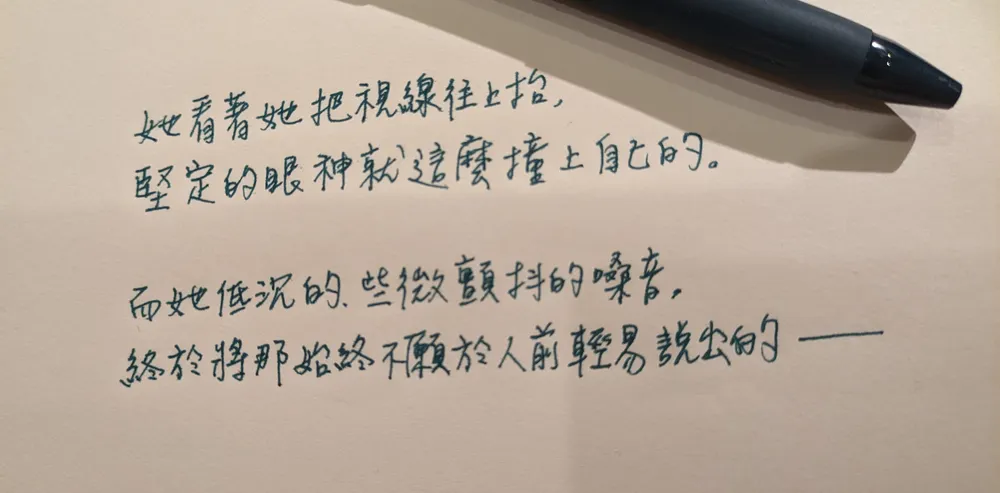 她看著她把視線往上抬，
堅定的眼神就這麼撞上自己的。
而她低沉的、些微顫抖的嗓音，
終於將那始終不願於人前輕易說出的——